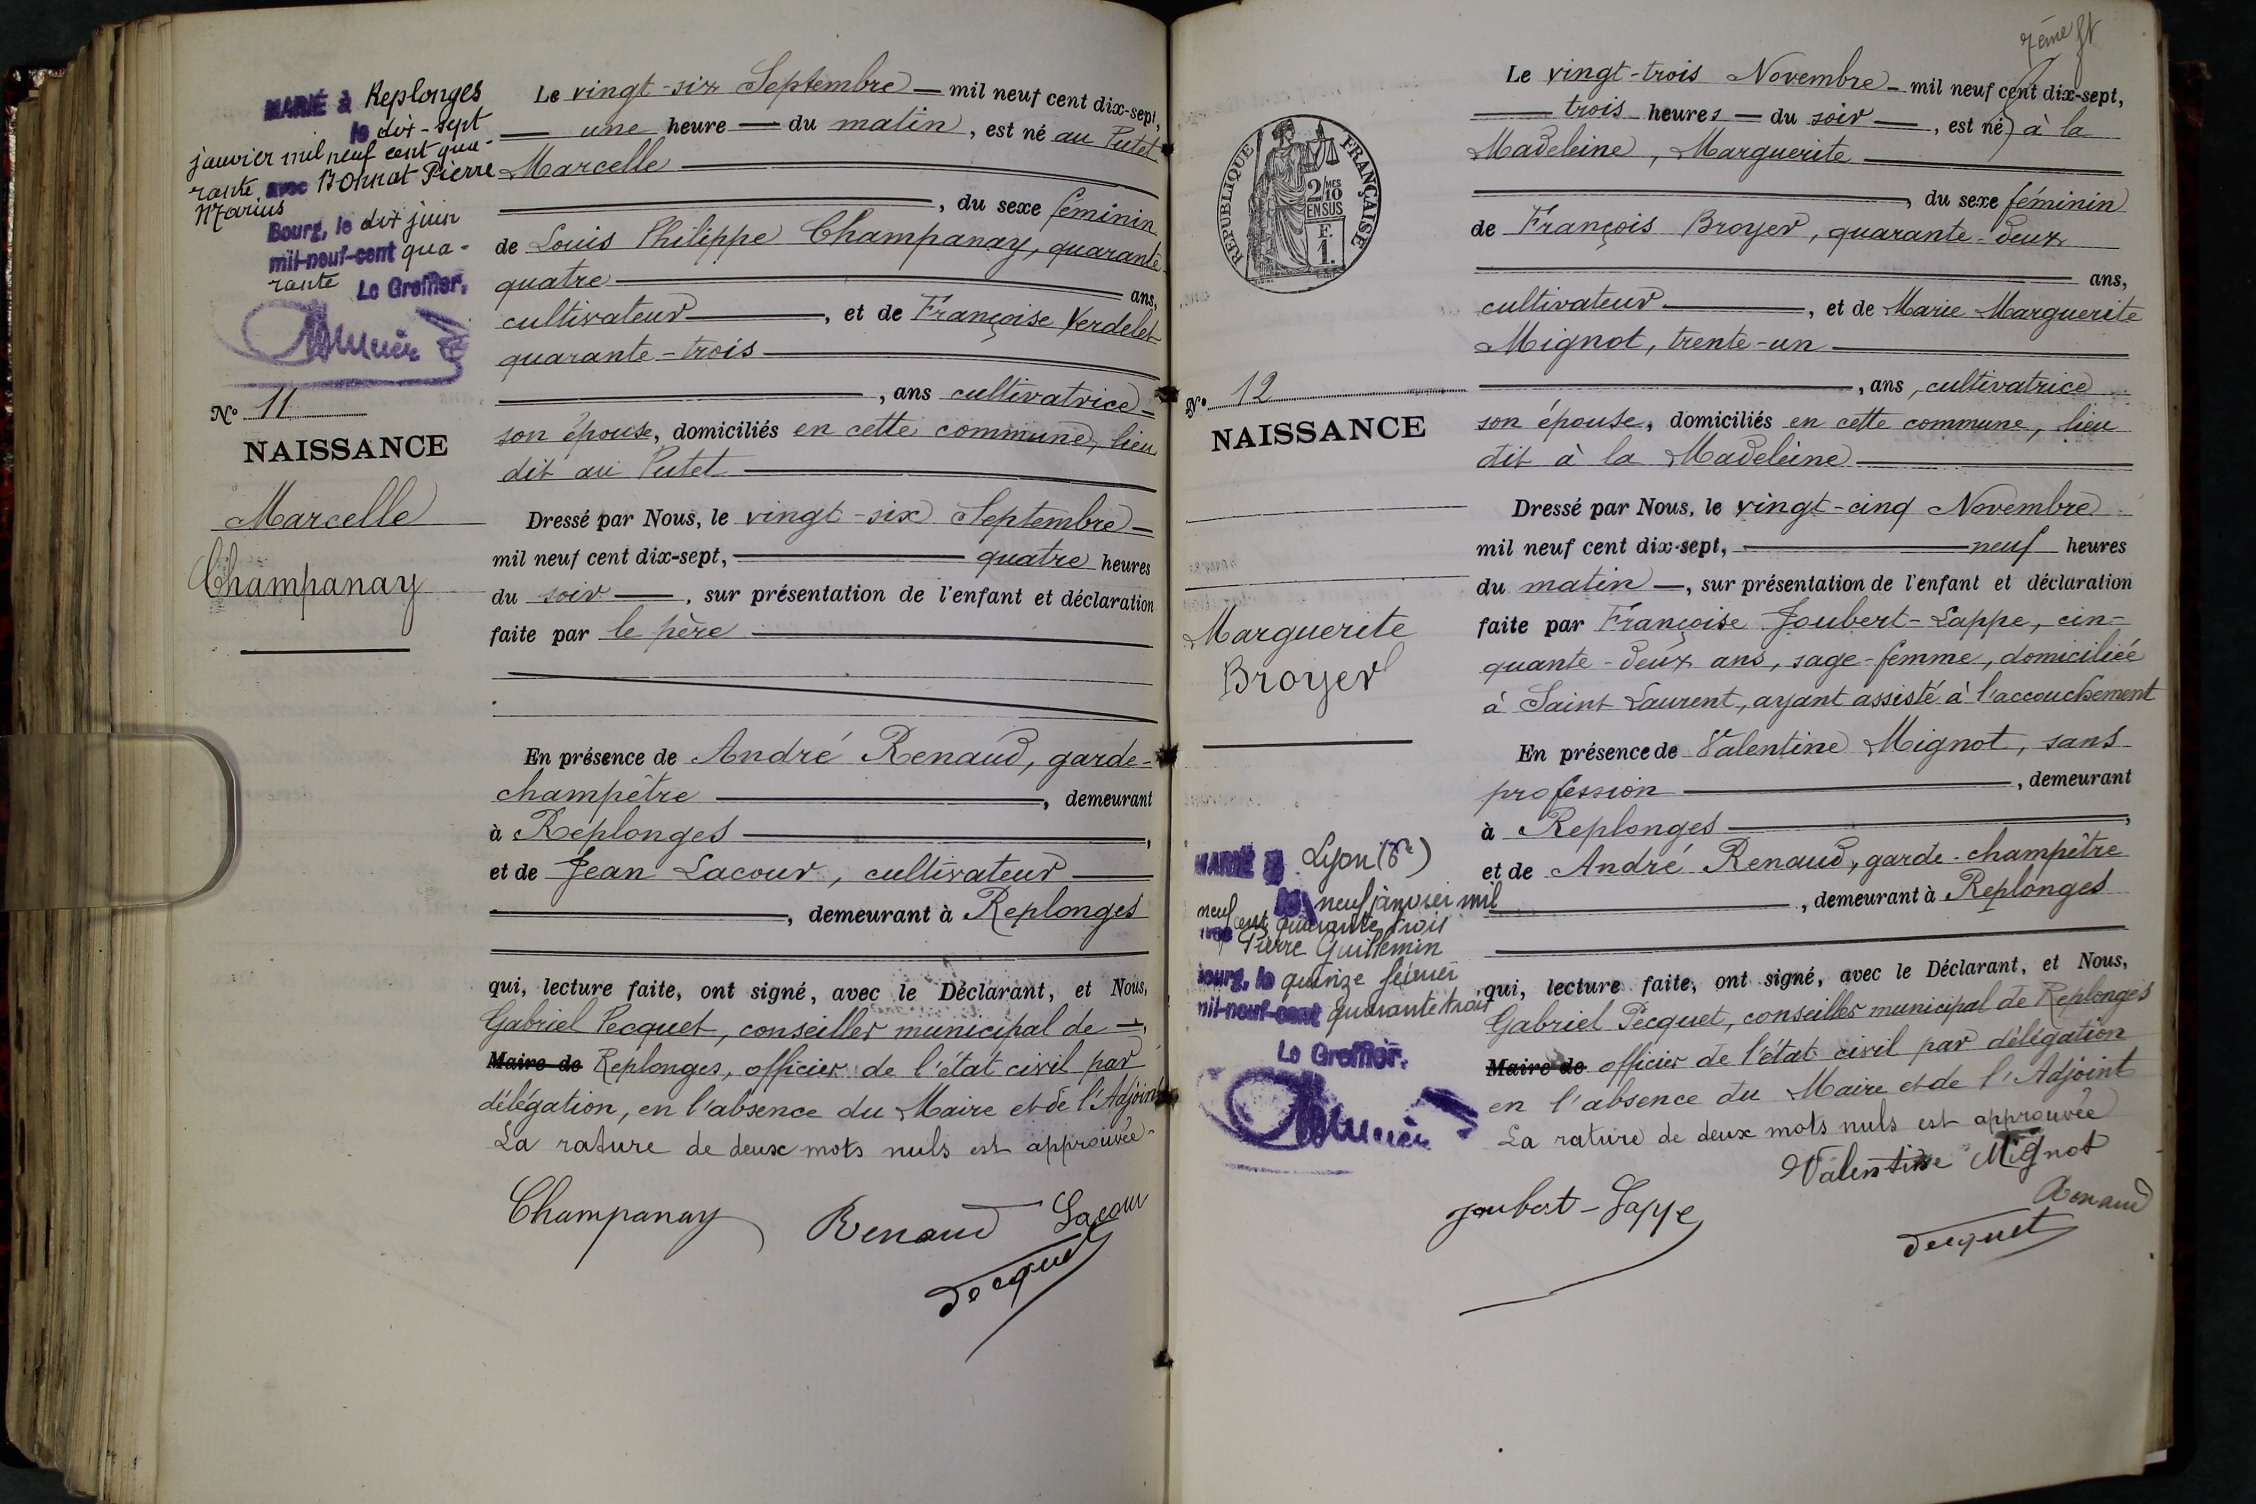 MARIÉ à Replonges
le dix-sept
janvier mil neuf cent qua-
rante avec Bonnat Pierre
Marius
Bourg, le dix juin
mil-neuf-cent qua-
rante Le Greffier,
N° 11
NAISSANCE
Marcelle
Champanay
Le vingt-six Septembre — mil neuf cent dix-sept,
— une heure — du matin, est né au Putet
Marcelle
, du sexe féminin
de Louis Philippe Champanay, quarante-
quatre ans,
cultivateur, et de Françoise Verdelet
quarante-trois
, ans cultivatrice
son épouse, domiciliés en cette commune, lieu
dit au Putet
Dressé par Nous, le vingt-six Septembre
mil neuf cent dix-sept, quatre heures
du soir, sur présentation de l'enfant et déclaration
faite par le père
En présence de André Renaud, garde-
champêtre, demeurant
à Replonges,
et de Jean Lacour, cultivateur
, demeurant à Replonges
qui, lecture faite, ont signé, avec le Déclarant, et Nous,
Gabriel Pecquet, conseiller municipal de
Maire de Replonges, officier de l'état civil par
délégation, en l'absence du Maire et de l'Adjoint
La rature de deux mots nuls est approuvée.
Champanay Renaud Lacour
Pecquet
7ème ft
RÉPUBLIQUE FRANÇAISE
2/10 MES
EN SUS
F.
1.
N° 12
NAISSANCE
Marguerite
Broyer
MARIÉ à Lyon
le neuf janvier mil
neuf cent quarante trois
avec Pierre Guillemin
Bourg, le quinze février
mil-neuf-cent quarante trois
Le Greffier,
Le vingt-trois Novembre — mil neuf cent dix-sept,
— trois heures — du soir —, est né à la
Madeleine, Marguerite
, du sexe féminin
de François Broyer, quarante-deux
ans,
cultivateur, et de Marie Marguerite
Mignot, trente-un
, ans, cultivatrice
son épouse, domiciliés en cette commune, lieu
dit à la Madeleine
Dressé par Nous, le vingt-cinq Novembre
mil neuf cent dix-sept, neuf heures
du matin —, sur présentation de l'enfant et déclaration
faite par Françoise Joubert-Lappe, cin-
quante-deux ans, sage-femme, domiciliée
à Saint Laurent, ayant assisté à l'accouchement
En présence de Valentine Mignot, sans
profession, demeurant
à Replonges,
et de André Renaud, garde-champêtre
, demeurant à Replonges
qui, lecture faite, ont signé, avec le Déclarant, et Nous,
Gabriel Pecquet, conseiller municipal de Replonges
Maire de officier de l'état civil par délégation
en l'absence du Maire et de l'Adjoint
La rature de deux mots nuls est approuvée
Valentine Mignot
Joubert-Lappe Renaud
Pecquet